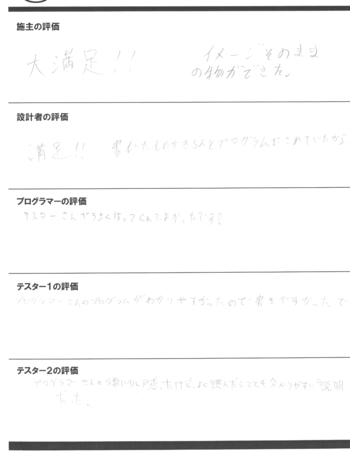 施主の評価
大満足!! イメージそのまま
の物ができた。
設計者の評価
満足!! 書いたものがきちんとプログラムされていたから
プログラマーの評価
テスターさんがうまくやってくれてよかったです!
テスター1の評価
プログラマーさんのプログラムがわかりやすかったので書きやすかったで
テスター2の評価
プログラマーさんの 感じたけど、よく読んだらとても 説明
だった。